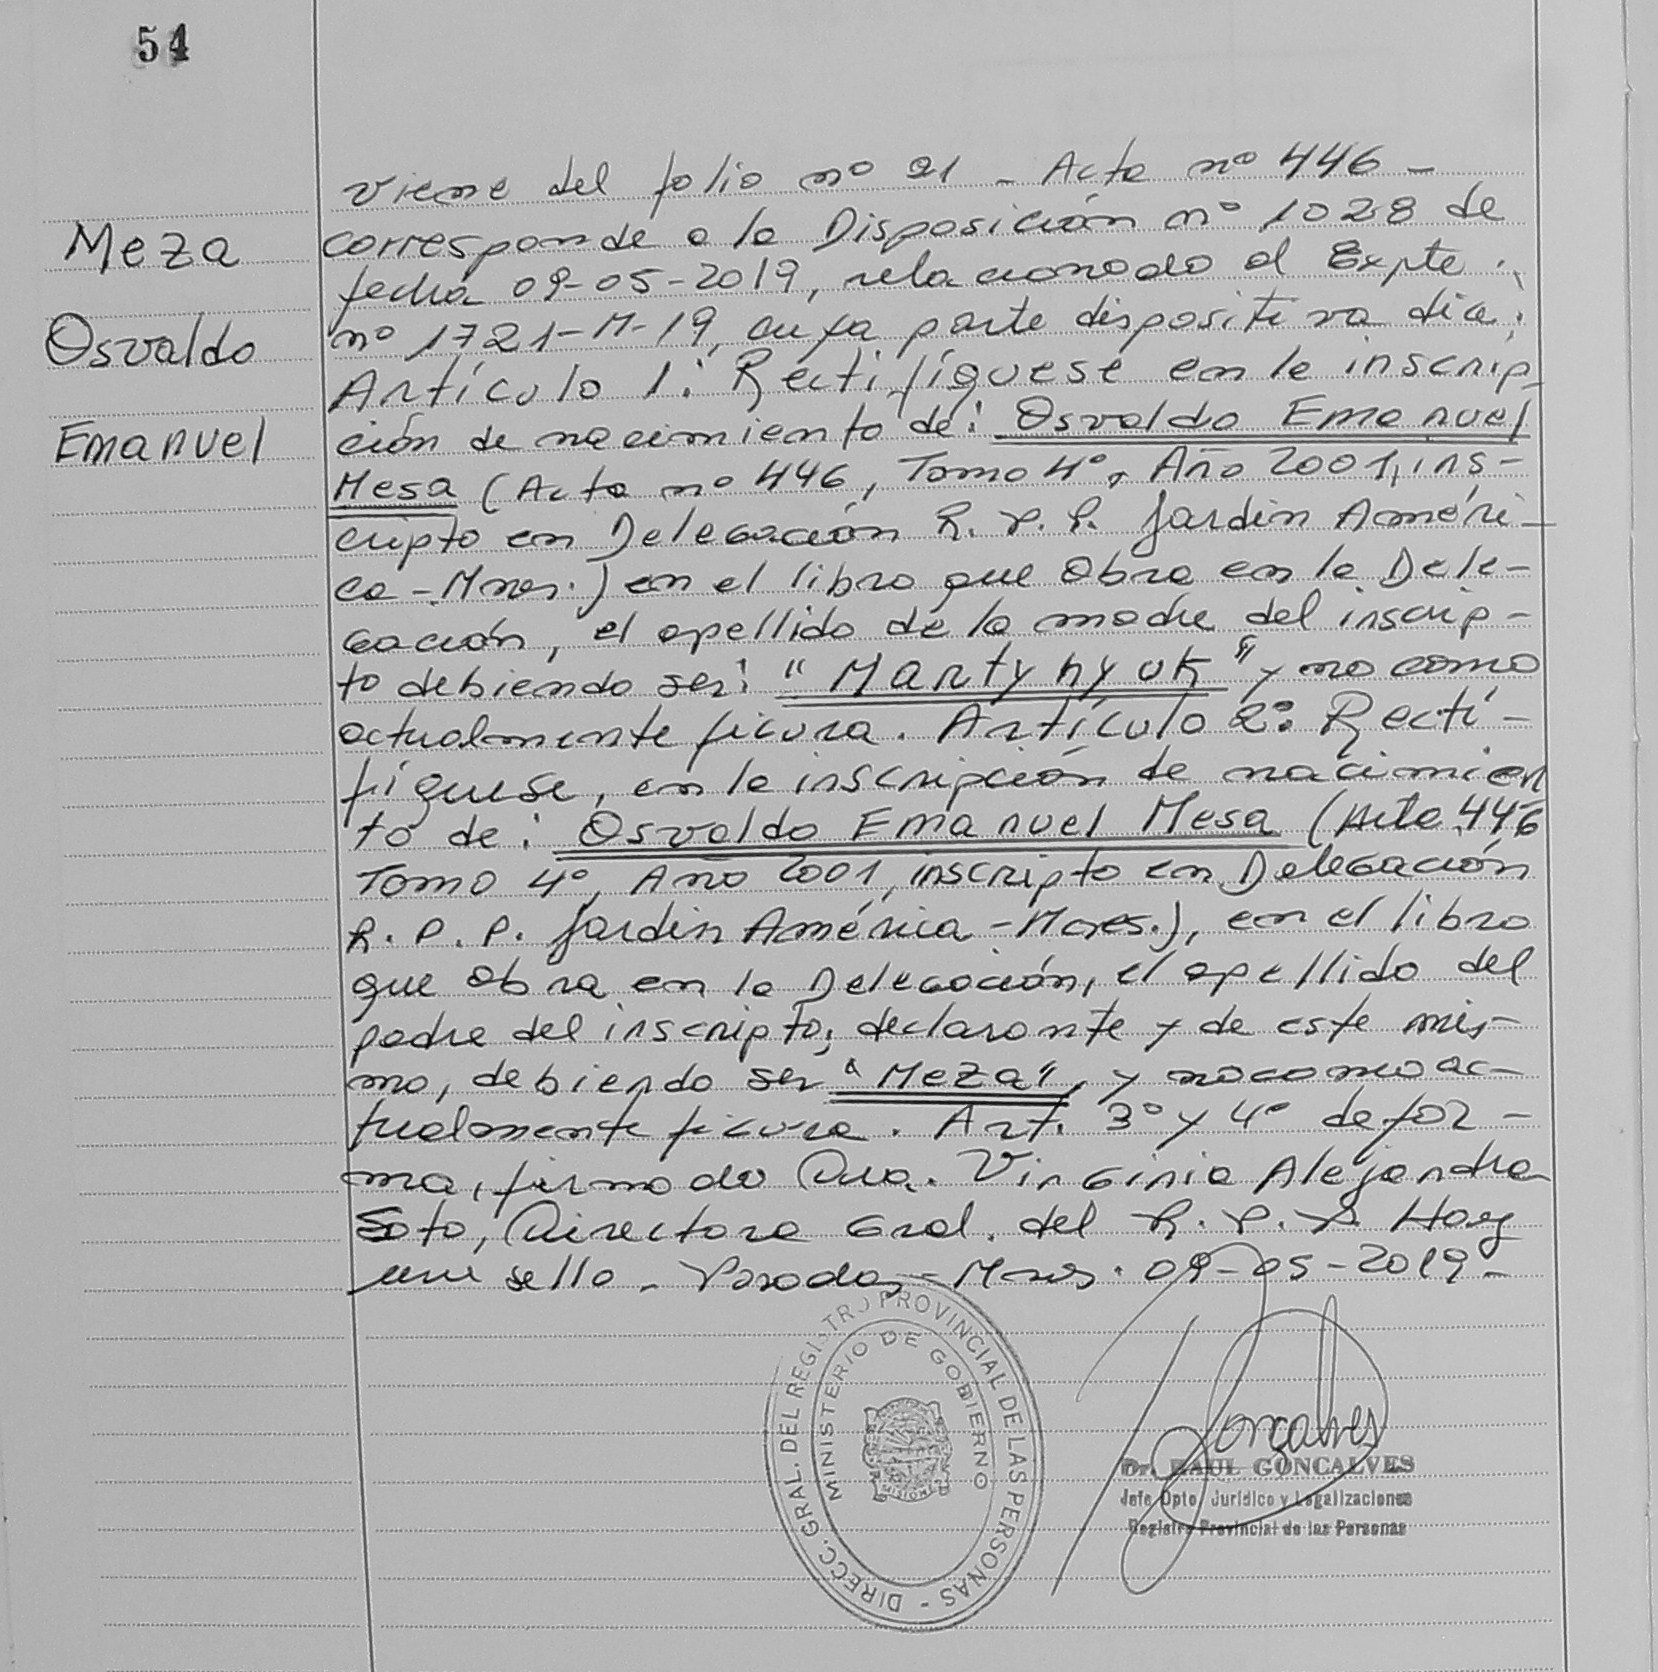 54
Meza
Osvaldo
Emanuel
Viene del folio nº 21 - Acta nº 446 -
corresponde a la Disposición nº 1028 de
fecha 09-05-2019, relacionado al Expte.
nº 1721-M-19, cuya parte dispositiva dice:
Artículo 1: Rectifíquese en la inscrip-
ción de nacimiento de: Osvaldo Emanuel
Mesa (Acta nº 446, Tomo 4º, Año 2001, ins-
cripto en Delegación R.P.P. Jardín Améri-
ca - Mnes.) en el libro que obra en la Dele-
gación, el apellido de la madre del inscrip-
to debiendo ser: "Martynyuk" y no como
actualmente figura. Artículo 2º: Recti-
fíquese, en la inscripción de nacimien
to de: Osvaldo Emanuel Mesa (Acta 446
Tomo 4º, Año 2001, inscripto en Delegación
R.P.P. Jardín América - Mnes.), en el libro
que obra en la Delegación, el apellido del
padre del inscripto, declarante y de este mis-
mo, debiendo ser "Meza", y no como ac-
tualmente figura. Art. 3º y 4º de for-
ma, firmado Dra. Virginia Alejandra
Soto, Directora Gral. del R.P.P. Hay
un sello - Posadas - Mnes. 09-05-2019 -
DIRECC. GRAL. DEL REGISTRO PROVINCIAL DE LAS PERSONAS -
MINISTERIO DE GOBIERNO
MISIONES
Goncalves
Dr. RAUL GONCALVES
Jefe Dpto. Jurídico y Legalizaciones
Registro Provincial de las Personas